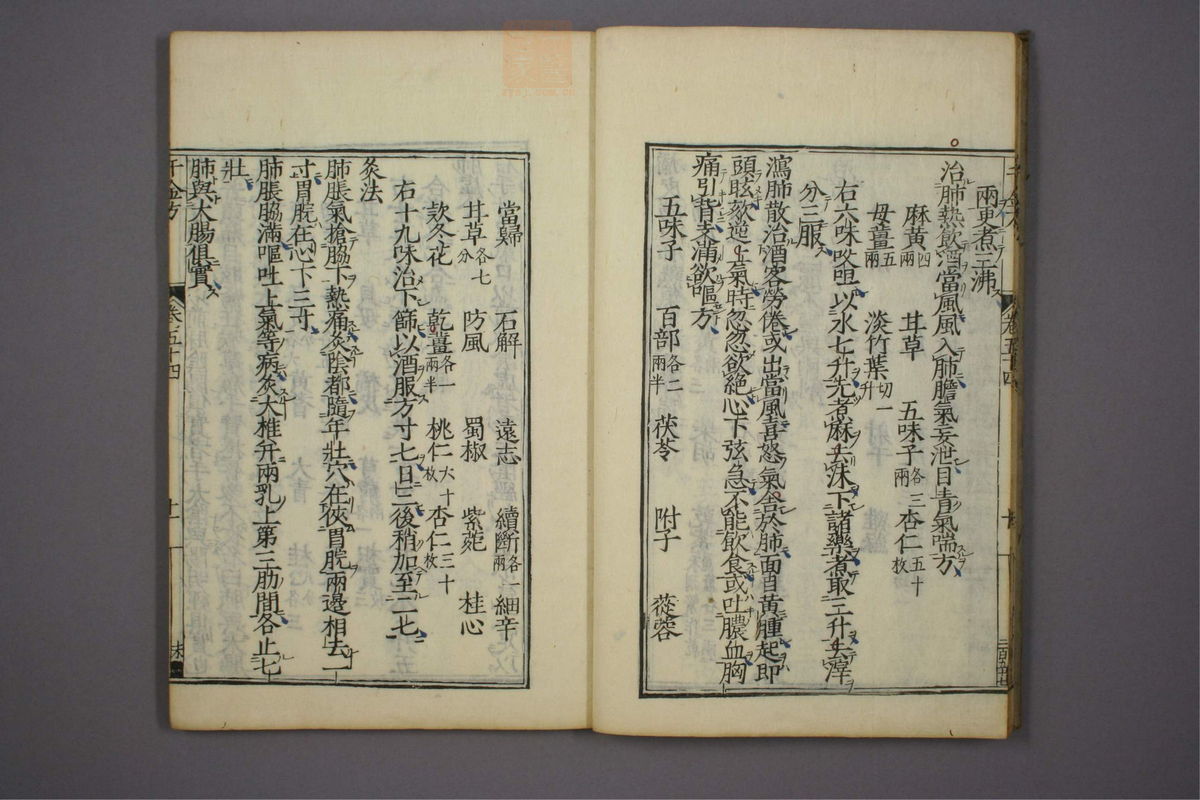 兩更煮三沸
治肺熱飲酒當風風入肺膽氣妄泄目青氣喘方
麻黃四兩 甘草 五味子各三兩 杏仁五十枚
母薑五兩 淡竹葉切一升
右六味㕮咀以水七升先煮麻去沫下諸藥煮取二升去滓
分三服
瀉肺散治酒客勞倦或出當風喜怒氣舍於肺面目黃腫起即
頭眩欬逆上氣時忽忽欲絕心下弦急不能飲食或吐膿血胸
痛引背支滿欲嘔方
五味子 百部各二兩半 茯苓 附子 蓯蓉
當歸 石解 遠志 續斷各一兩 細辛
甘草各七分 防風 蜀椒 紫菀 桂心
款冬花 乾薑各一兩半 桃仁六十枚 杏仁三十枚
右十九味治下篩以酒服方寸七日三後稍加至二七
灸法
肺脹氣搶脇下熱痛灸陰都隨年壯穴在俠胃脘兩邊相去一
寸胃脘在心下三寸
肺脹脇滿嘔吐上氣等病灸大椎并兩乳上第三肋間各止七
壯
肺與大腸俱實
千金方 卷之五十四 十一 末